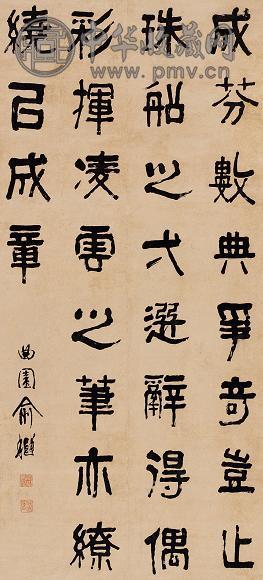 中华收藏网
www.pmv.cn
成芬數典爭奇豈止
珠船之弌選辭得偶
彩揮凌雲之筆亦繚
繞㠯成章
曲園俞樾